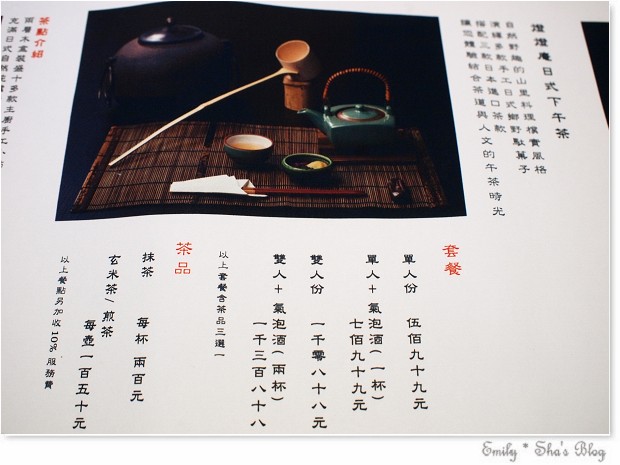 燈燈庵日式下午茶
自然野趣的山里料理樸實風格
演繹多款手工日式鄉野點菓子
搭配三款日本進口茶款
讓您體驗結合茶道與人文的午茶時光
茶點介紹
兩層木盒裝盛十多款主廚手工小
充滿日式自然
套餐
單人份 伍佰九十九元
單人+氣泡酒(一杯)
七佰九十九元
雙人份 一千零八十八元
雙人+氣泡酒(兩杯)
一千三百八十八
以上套餐含茶品三選一
茶品
抹茶 每杯 兩百元
玄米茶/煎茶
每壺一百五十元
以上餐點另加收10%服務費
Emily * Sha's Blog